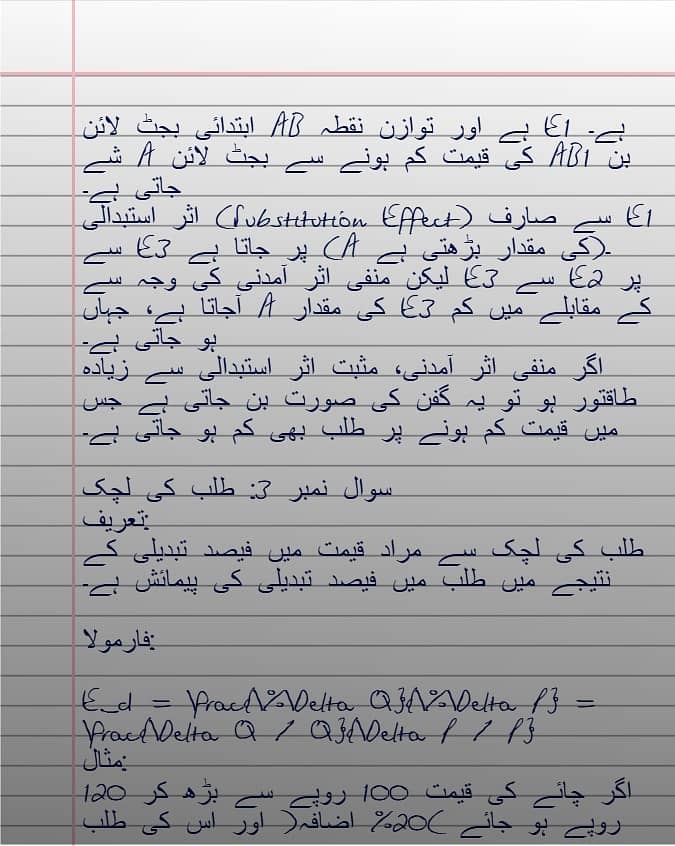 ابتدائی بجٹ لائن AB ہے اور توازن نقطہ E1 ہے۔
شے A کی قیمت کم ہونے سے بجٹ لائن AB1 بن
جاتی ہے۔
اثر استبدالی (Substitution Effect) سے صارف E1
سے E3 پر جاتا ہے (A کی مقدار بڑھتی ہے)۔
لیکن منفی اثر آمدنی کی وجہ سے E3 سے E2 پر
آجاتا ہے، جہاں A کی مقدار E3 کے مقابلے میں کم
ہو جاتی ہے۔
اگر منفی اثر آمدنی، مثبت اثر استبدالی سے زیادہ
طاقتور ہو تو یہ گفن کی صورت بن جاتی ہے جس
میں قیمت کم ہونے پر طلب بھی کم ہو جاتی ہے۔
سوال نمبر 3: طلب کی لچک
تعریف:
طلب کی لچک سے مراد قیمت میں فیصد تبدیلی کے
نتیجے میں طلب میں فیصد تبدیلی کی پیمائش ہے۔
فارمولا:
E_d = \frac{\%\Delta Q}{\%\Delta P} =
\frac{\Delta Q / Q}{\Delta P / P}
مثال:
اگر چائے کی قیمت 100 روپے سے بڑھ کر 120
روپے ہو جائے (20% اضافہ) اور اس کی طلب